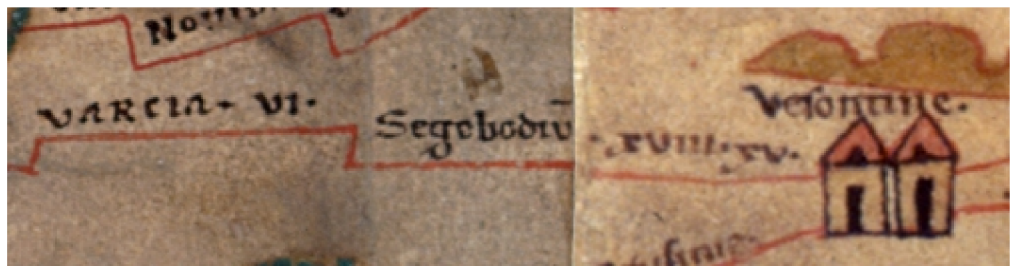 VARCIA· VI·
Segobodiū
·XVIII·XV·
Vesontine·